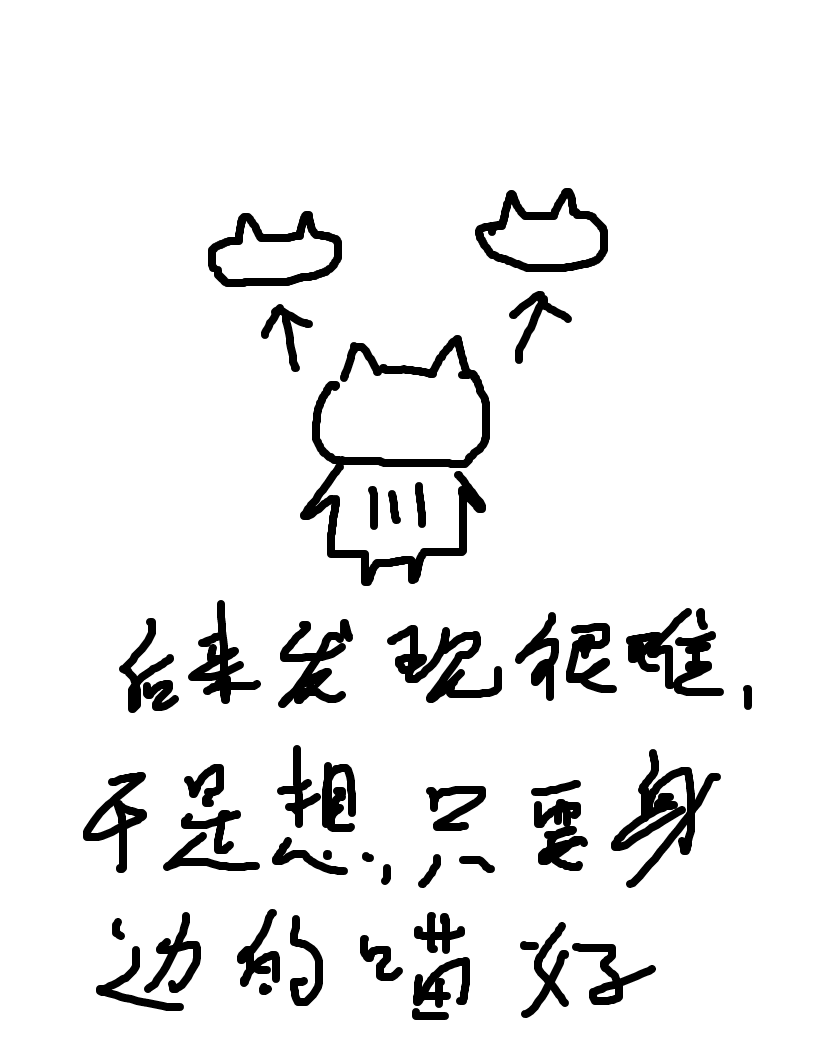 后来发现很难，
于是想，只要身
边的喵好